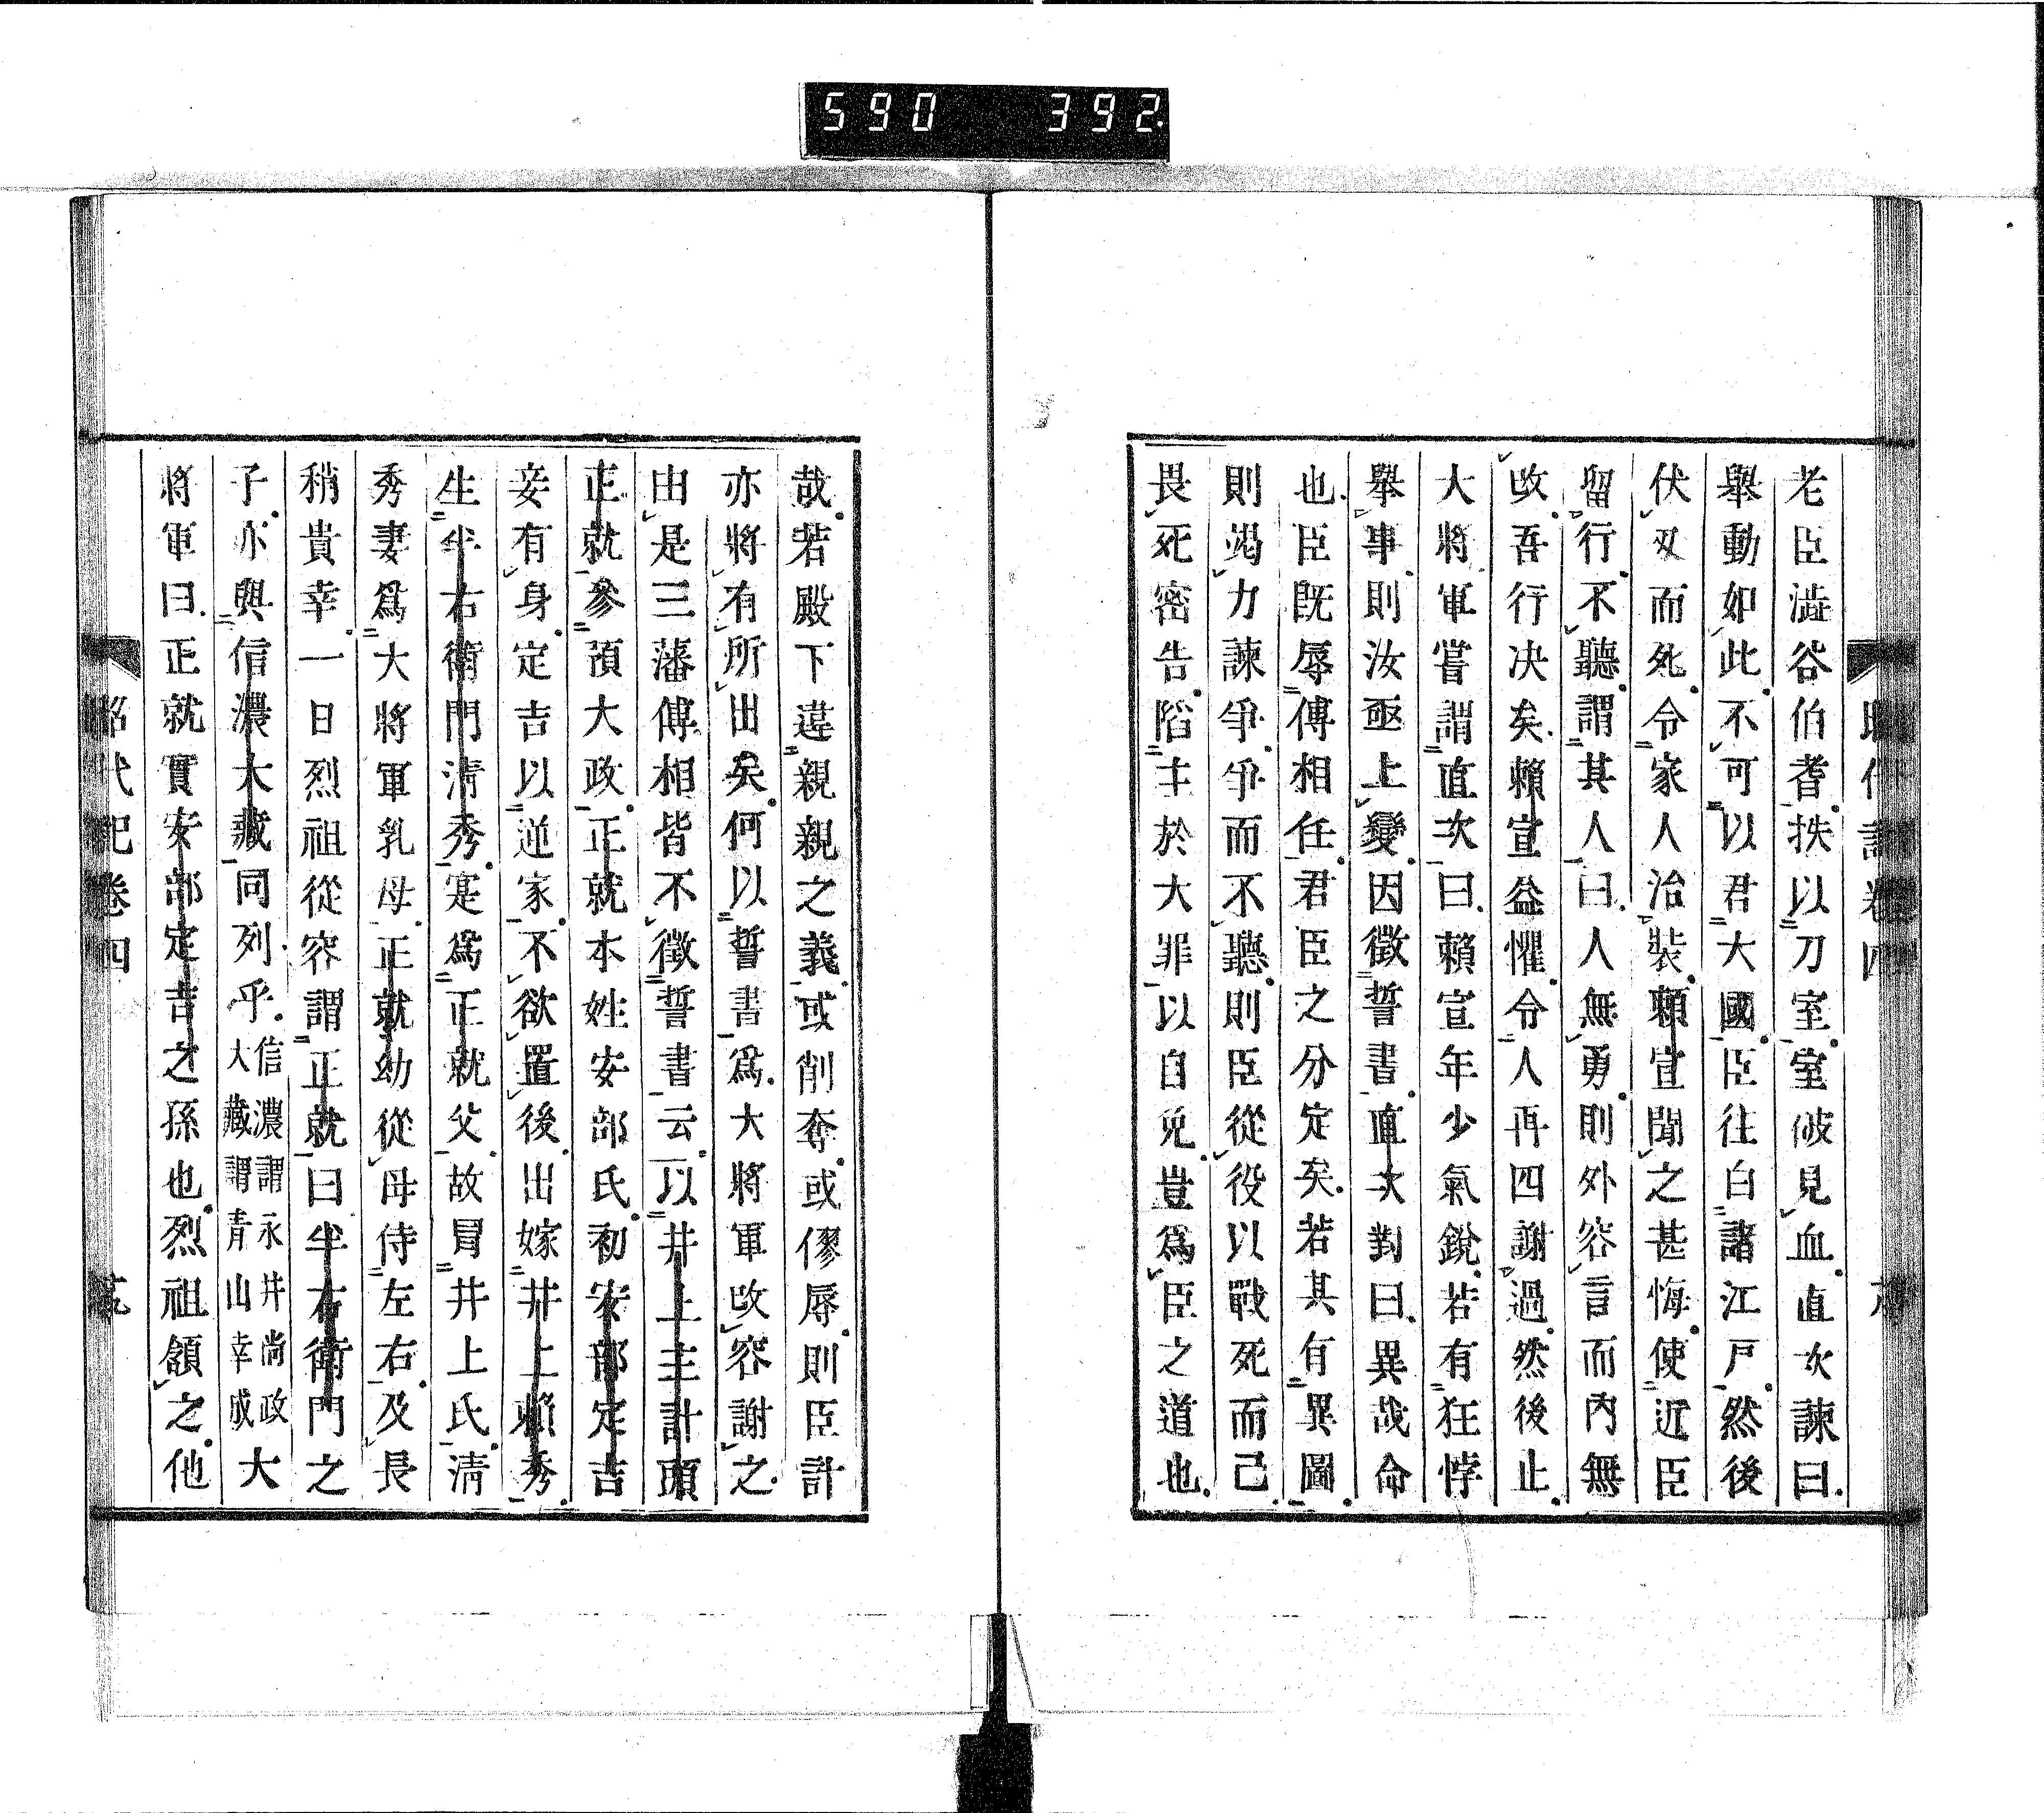 590 392
老臣澁谷伯耆抶以刀室室破見血直次諫曰
舉動如此不可以君大國臣往白諸江戸然後
伏刄而死令家人治裝賴宣聞之甚悔使近臣
留行不聽謂其人曰人無勇則外容言而內無
改吾行決矣賴宣益懼令人再四謝過然後止
大將軍嘗謂直次曰賴宣年少氣銳若有狂悖
擧事則汝亟上變因徵誓書直次對曰異哉命
也臣既辱傅相任君臣之分定矣若其有異圖
則竭力諫爭爭而不聽則臣從役以戰死而已
畏死密告陷主於大罪以自免豈爲臣之道也
哉若殿下違親親之義或削奪或僇辱則臣計
亦將有所出矣何以誓書爲大將軍改容謝之
由是三藩傅相皆不徵誓書云以井上主計頭
正就參預大政正就本姓安部氏初安部定吉
妾有身定吉以逆家不欲置後出嫁井上賴秀
生半右衛門淸秀寔爲正就父故冒井上氏淸
秀妻爲大將軍乳母正就幼從母侍左右及長
稍貴幸一日烈祖從容謂正就曰半右衛門之
子亦與信濃大藏同列乎信濃謂永井尚政大藏謂靑山幸成大
將軍曰正就實安部定吉之孫也烈祖頷之他
昭代記卷四